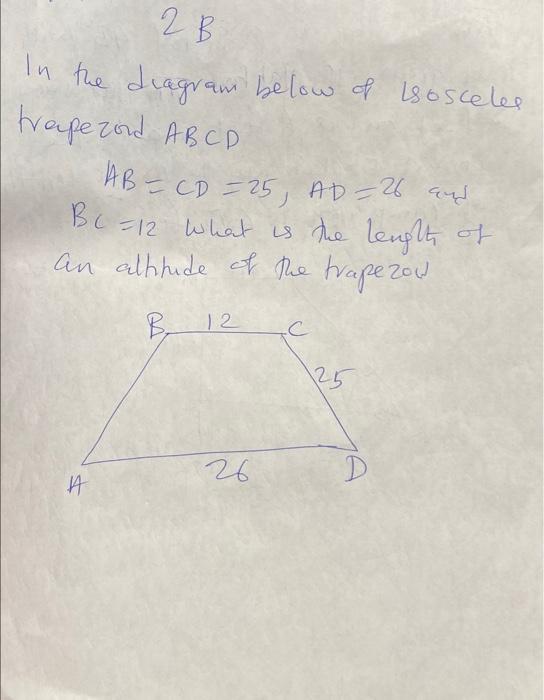 2 B
In the diagram below of Isosceles
trapezoid ABCD
AB = CD = 25, AD = 26 and
BC = 12 What is the length of
an altitude of the trapezoid
B 12 C
25
A 26 D